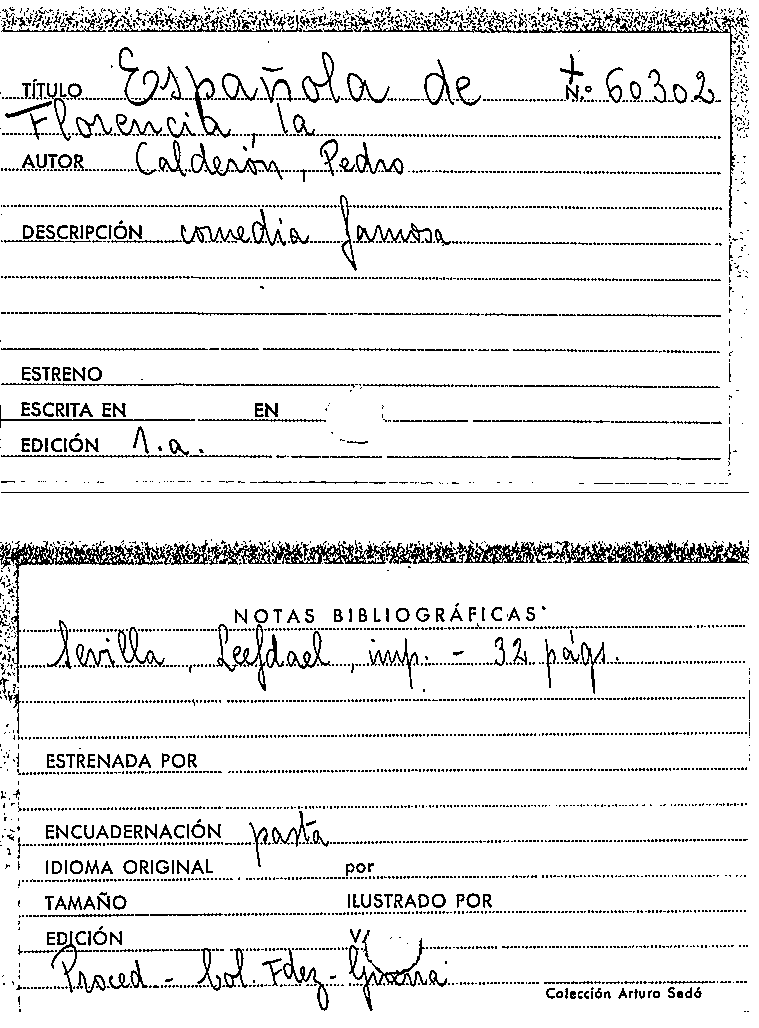 TÍTULO Española de + N.º 60302
Florencia, la
AUTOR Calderón, Pedro
DESCRIPCIÓN comedia famosa
ESTRENO
ESCRITA EN EN
EDICIÓN 1.a.
NOTAS BIBLIOGRÁFICAS
Sevilla, Leefdael, imp. - 32 págs.
ESTRENADA POR
ENCUADERNACIÓN pasta
IDIOMA ORIGINAL por
TAMAÑO ILUSTRADO POR
EDICIÓN
Proced - Col. Fdez - Guerra
Colección Arturo Sedó